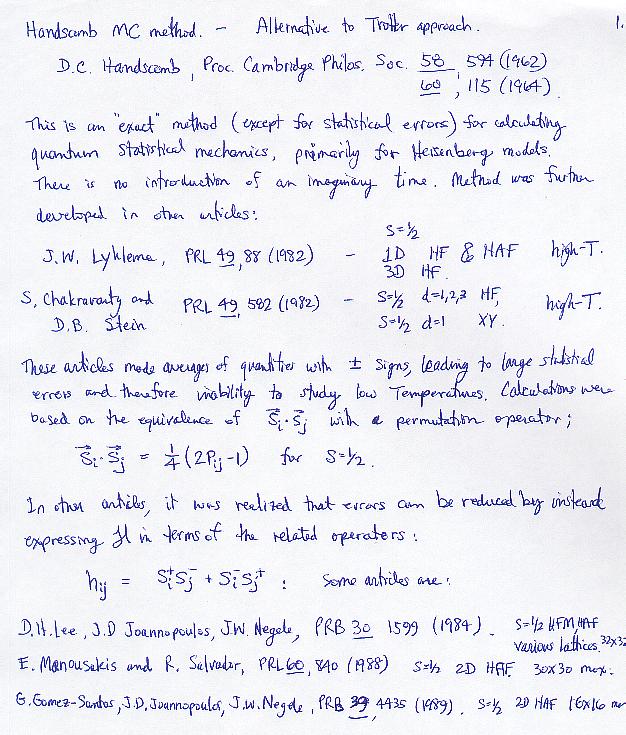 Handscomb MC method. - Alternative to Trotter approach. 1.
D.C. Handscomb, Proc. Cambridge Philos. Soc. 58, 594 (1962)
60, 115 (1964)
This is an "exact" method (except for statistical errors) for calculating
quantum statistical mechanics, primarily for Heisenberg models.
There is no introduction of an imaginary time. Method was further
developed in other articles:
J.W. Lyklema, PRL 49, 88 (1982) - S=½ 1D HF & HAF high-T.
3D HF.
S. Chakravarty and PRL 49, 582 (1982) - S=½ d=1,2,3 HF, high-T.
D.B. Stein S=½ d=1 XY.
These articles made averages of quantities with ± signs, leading to large statistial
errors and therefore inability to study low Temperatures. Calculations were
based on the equivalence of S⃗i·S⃗j with a permutation operator;
S⃗i·S⃗j = ¼(2Pij-1) for S=½.
In other articles, it was realized that errors can be reduced by instead
expressing H in terms of the related operators:
hij = Si⁺Sj⁻ + Si⁻Sj⁺ : Some articles are:
D.H. Lee, J.D Joannopoulos, J.W. Negele, PRB 30 1599 (1984). S=½ HFM, HAF
various lattices. 32x32
E. Manousakis and R. Salvador, PRL 60, 840 (1988) S=½ 2D HAF 30x30 max.
G. Gomez-Santos, J.D. Joannopoulos, J.W. Negele, PRB 39, 4435 (1989). S=½ 2D HAF 16x16